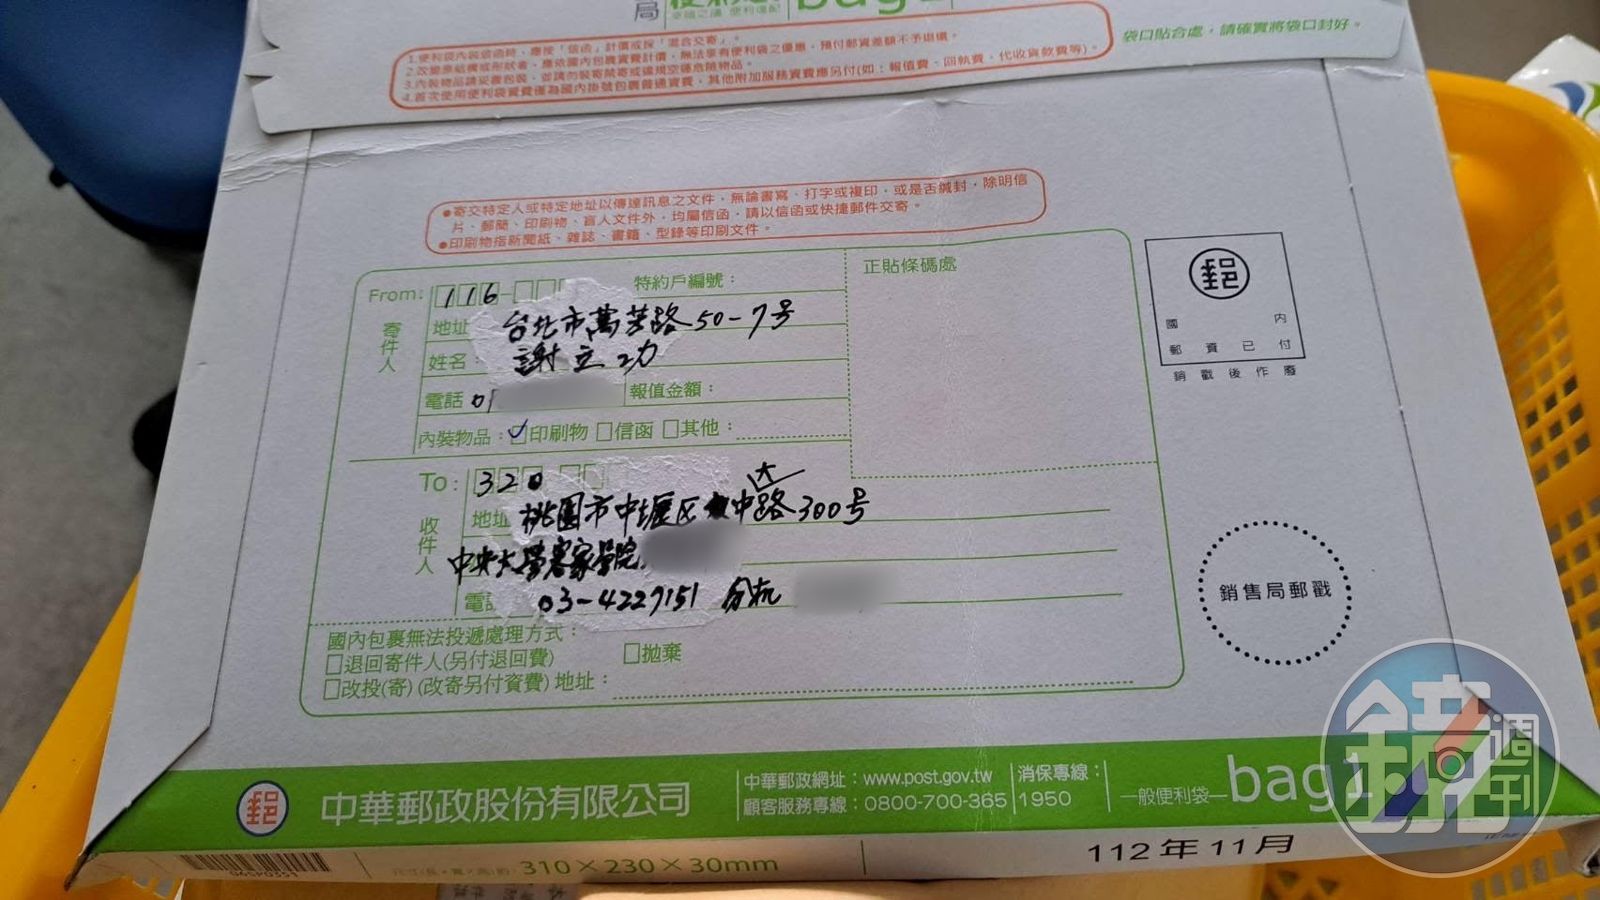 局
bag1
1.便利袋內裝信函時、應按「信函」計價或採「混合交寄」。
2.改變原結構或形狀者、應依國內包裹資費計價，無法享有便利袋之優惠，預付郵資差額不予退還。
3.內裝物品請妥書包裝，並請勿裝寄禁寄或違規空運危險物品。
4.首次使用便利袋資費僅為國內掛號包裹普通資費，其他附加服務資費應另付(如：報值費、回執費、代收貨款費等)。
袋口貼合處，請確實將袋口封好。
●寄交特定人或特定地址以傳達訊息之文件，無論書寫、打字或複印，或是否緘封，除明信
片、郵簡、印刷物、盲人文件外，均屬信函，請以信函或快捷郵件交寄。
●印刷物指新聞紙、雜誌、書籍、型錄等印刷文件。
From: 116 特約戶編號：
寄件人
地址 台北市萬芳路50-7号
姓名 謝立功
電話 0 報值金額：
內裝物品：☑印刷物 □信函 □其他：
正貼條碼處
郵
國內
郵資已付
銷戳後作廢
To: 320
收件人
大
地址 桃園市中壢区中路300号
中央大學客家學院
電話 03-4227151 分机
銷售局郵戳
國內包裹無法投遞處理方式：
□退回寄件人(另付退回費) □拋棄
□改投(寄)(改寄另付資費) 地址：
郵 中華郵政股份有限公司
中華郵政網址：www.post.gov.tw
顧客服務專線：0800-700-365
消保專線：
1950
一般便利袋 bag1
310×230×30mm
112年11月
鏡週刊